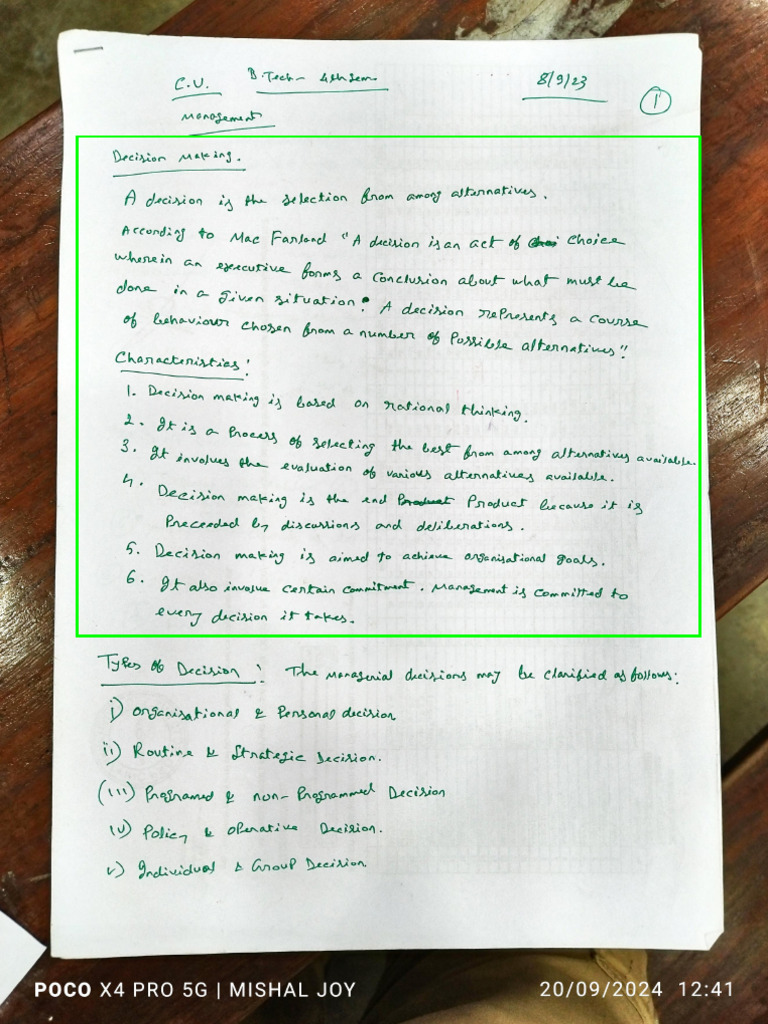 C.U. B.Tech- 4th sem. 8/9/23 1
Management
Decision Making.
A decision is the selection from among alternatives.
According to Mac Farland "A decision is an act of choice
wherein an executive forms a conclusion about what must be
done in a given situation. A decision represents a course
of behaviour chosen from a number of Possible alternatives".
Characteristics:
1. Decision making is based on rational thinking.
2. It is a Process of selecting the best from among alternatives available.
3. It involves the evaluation of various alternatives available.
4. Decision making is the end Product Product because it is
Preceeded by discussions and deliberations.
5. Decision making is aimed to achieve organisational goals.
6. It also involve certain commitment. Management is committed to
every decision it takes.
Types of Decision: The Managerial decisions may be clarified as follows:
i) Organisational & Personal decision
ii) Routine & Strategic Decision.
(iii) Programed & non-Programmed Decision
iv) Policy & operative Decision.
v) Individual & Group Decision
POCO X4 PRO 5G | MISHAL JOY 20/09/2024 12:41